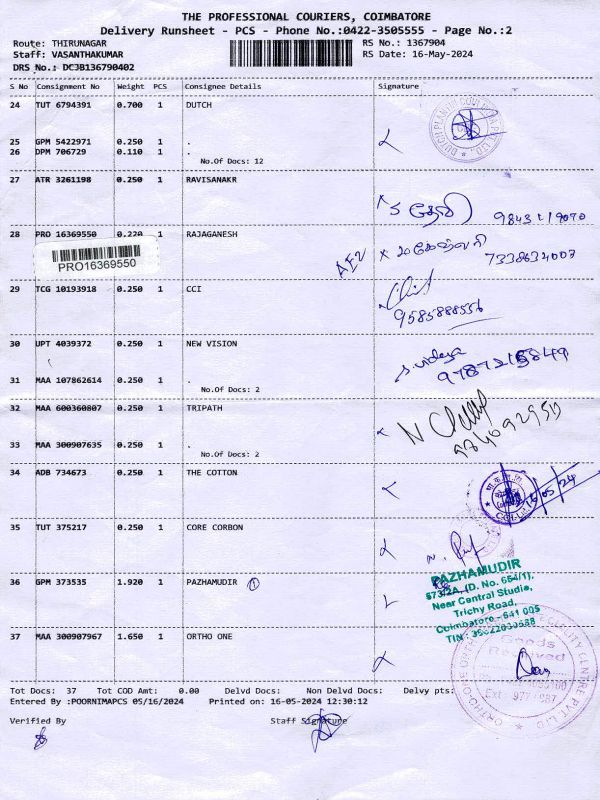 THE PROFESSIONAL COURIERS, COIMBATORE
Delivery Runsheet - PCS - Phone No.:0422-3505555 - Page No.:2
Route: THIRUNAGAR RS No.: 1367904
Staff: VASANTHAKUMAR RS Date: 16-May-2024
DRS No.: DC3B136790402
S No Consignment No Weight PCS Consignee Details Signature
24 TUT 6794391 0.700 1 DUTCH
25 GPM 5422971 0.250 1 .
26 DPM 706729 0.110 1 .
No.Of Docs: 12
27 ATR 3261198 0.250 1 RAVISANAKR
28 PRO 16369550 0.220 1 RAJAGANESH
7338634007
PRO16369550
29 TCG 10193918 0.250 1 CCI
9585888556
30 UPT 4039372 0.250 1 NEW VISION
31 MAA 107862614 0.250 1 .
No.Of Docs: 2
32 MAA 600360807 0.250 1 TRIPATH
33 MAA 300907635 0.250 1 .
No.Of Docs: 2
34 ADB 734673 0.250 1 THE COTTON
16/05/24
35 TUT 375217 0.250 1 CORE CORBON
36 GPM 373535 1.920 1 PAZHAMUDIR 1
PAZHAMUDIR
(D. No. 654/1),
Near Central Studio,
Trichy Road,
Coimbatore - 641 005
TIN :
37 MAA 300907967 1.650 1 ORTHO ONE
Goods
Received
Tot Docs: 37 Tot COD Amt: 0.00 Delvd Docs: Non Delvd Docs: Delvy pts:
Entered By :POORNIMAPCS 05/16/2024 Printed on: 16-05-2024 12:30:12
Verified By Staff Signature